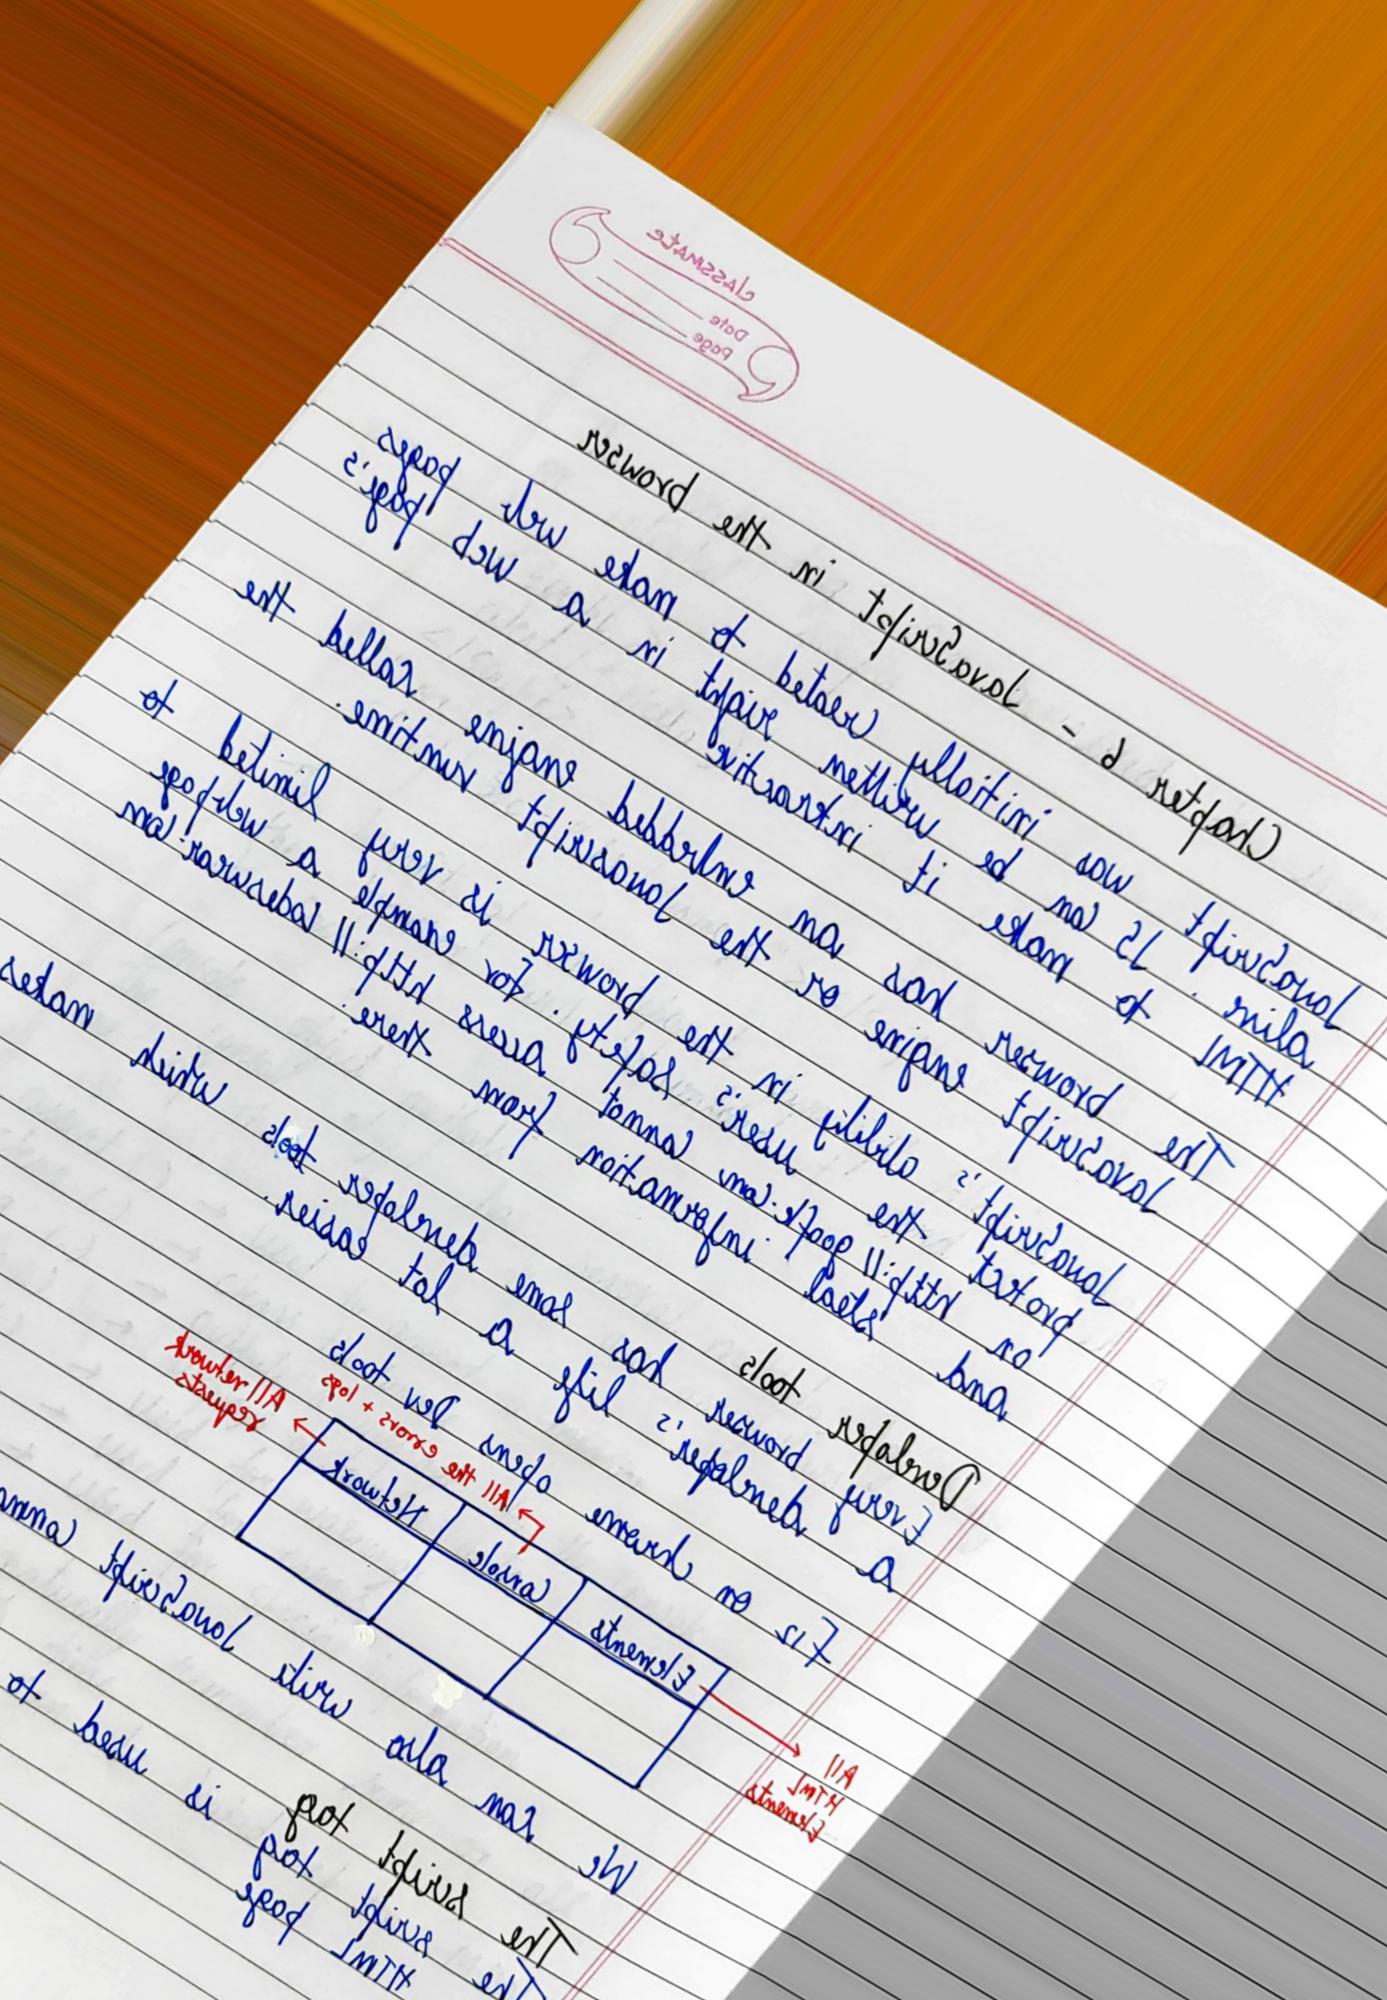 classmate
Date
Page
Chapter 6 - JavaScript in the browser
JavaScript was initially created to make web pages
alive. JS can be written right in a web page's
HTML to make it interactive
The browser has an embedded engine called the
JavaScript engine or the Javascript runtime.
JavaScript's ability in the browser is very limited to
protect the user's safety. For example a webpage
on http://google.com cannot access http://codeswear.com
and steal information from there.
Developer tools
Every browser has some developer tools which makes
a developer's life a lot easier.
F12 on chrome opens Dev tools
All the errors + logs
All network
requests
Elements Console Network
All
HTML
Elements
We can also write JavaScript comma
The script tag
The script tag is used to
HTML page